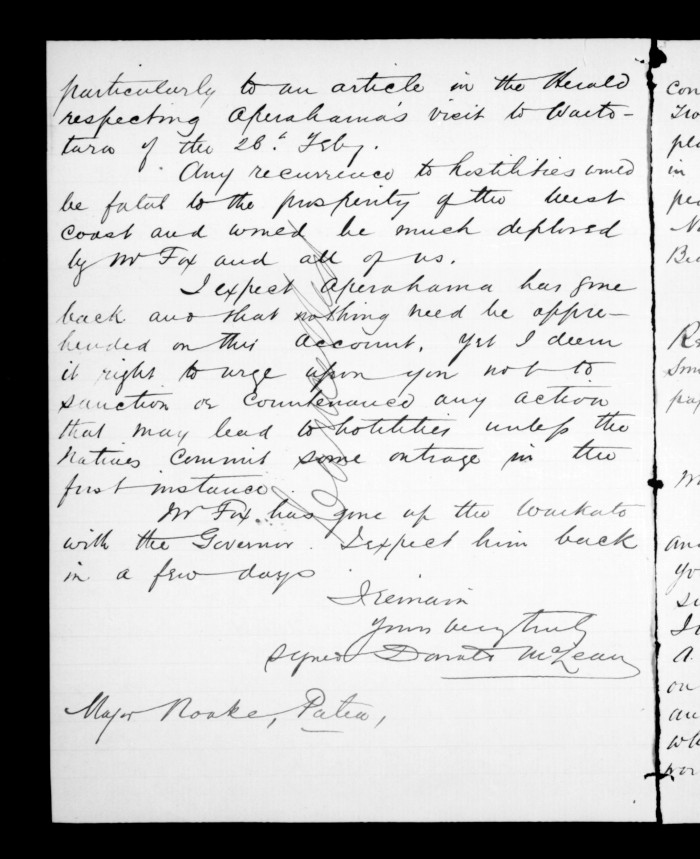 particularly to an article in the Herald
respecting Aperahama's visit to Waito-
tara of the 26th Feby.
Any recurrence to hostilities would
be fatal to the prosperity of the West
Coast and would be much deplored
by Mr Fox and all of us.
I expect Aperahama has gone
back and that nothing need be appre-
hended on this account, yet I deem
it right to urge upon you not to
sanction or countenance any action
that may lead to hotilities unless the
Natives commit some outrage in the
first instance.
Mr Fox has gone up the Waikato
with the Governor. I expect him back
in a few days
I remain
Yours very truly
Signed Donald McLean
Major Noake, Patea,
con
pla
in
Re
pap
and
yo
A
on
an
wh